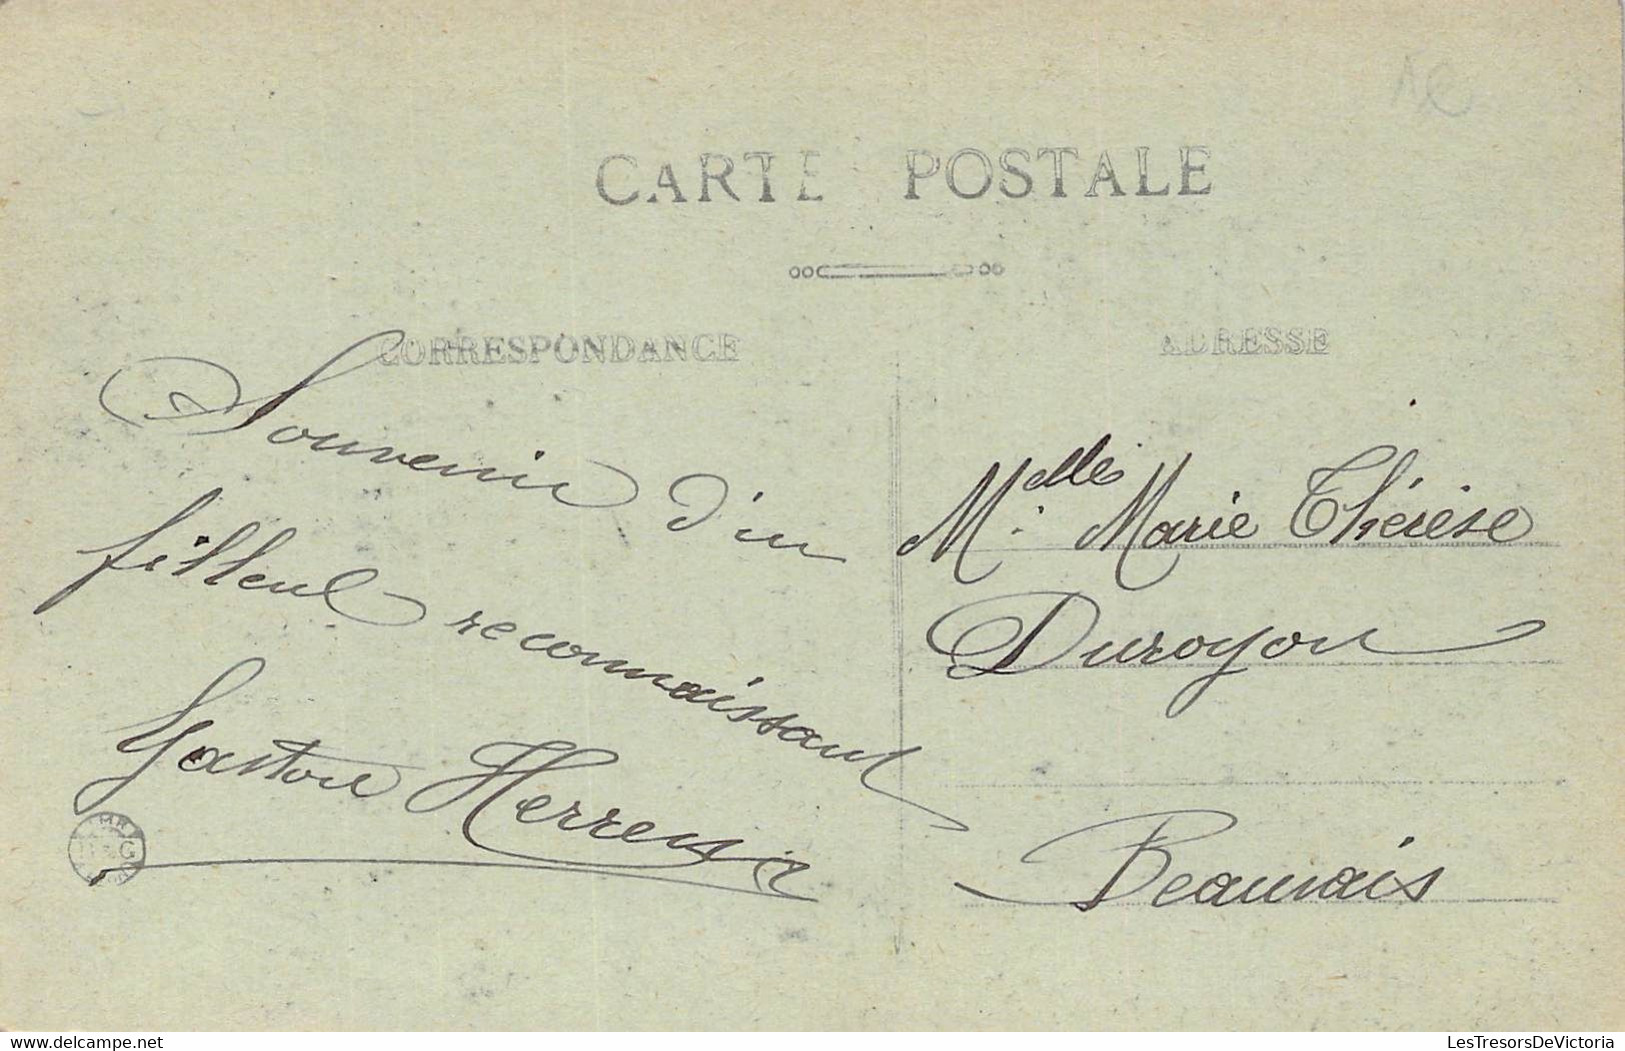 1€
CARTE POSTALE
CORRESPONDANCE
ADRESSE
Souvenir d'un
filleul reconnaissant
Gaston
Melle Marie Thérèse
Duroyon
Beauvais
LesTresorsDeVictoria